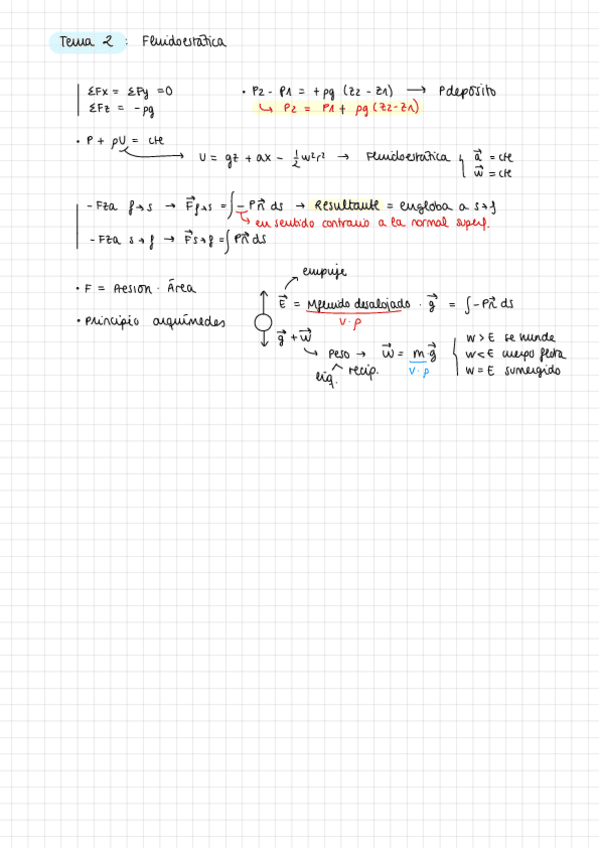 Tema 2 : Fluidoestática
ΣFx = ΣFy = 0
ΣFz = -ρg
• P2 - P1 = +ρg (z2 - z1) → Pdepósito
↳ P2 = P1 + ρg (z2-z1)
• P + ρU = cte
U = gz + ax - ½w²r² → Fluidoestática
a⃗ = cte
w⃗ = cte
- Fza f→s → F⃗f→s = ∫-Pn⃗ ds → Resultante = engloba a s→f
↳ en sentido contrario a la normal superf.
- Fza s→f → F⃗s→f = ∫Pn⃗ ds
empuje
• F = Presión · Área
E⃗ = Mfluido desalojado · g⃗ = ∫-Pn⃗ ds
V·ρ
• Principio arquímedes
g⃗ + W⃗
↳ Peso → W⃗ = m g⃗
V·ρ
líq. recip.
W > E se hunde
W < E cuerpo flota
W = E sumergido